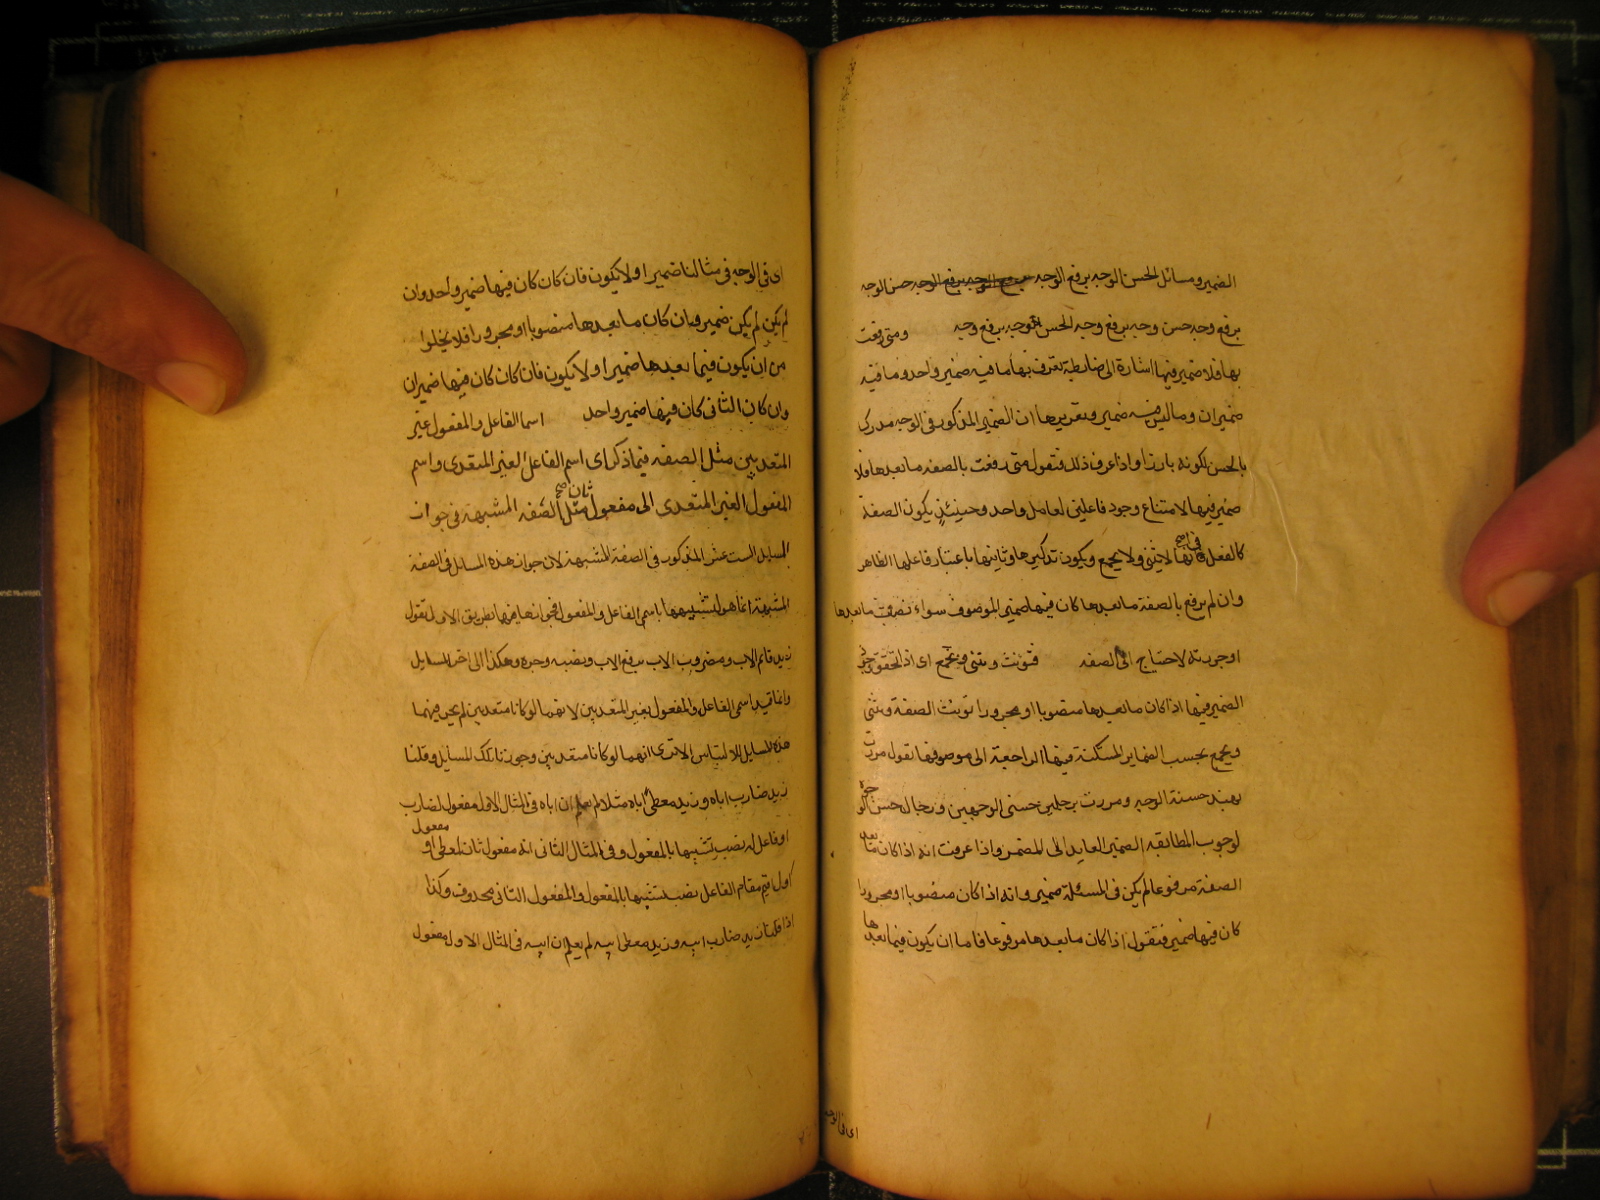 الضمير ومسائل الحسن الوجه برفع الوجه حسن الوجه
برفع وجه حسن وجه برفع وجه الحسن وجه برفع وجه ومتى رفعت
بها فلا ضمير فيها اشارة الى ضابطة تعرف بها ما فيه ضمير واحد وما فيه
ضميران وما ليس فيه ضمير وتقريرها ان الضمير المذكور فى الوجه مدرك
بالحسن لكونه بارزا واذا عرف ذلك فنقول متى رفعت بالصفة ما بعدها فلا
ضمير فيها لامتناع وجود فاعلين لعامل واحد وحينئذ يكون الصفة
كالفعل فى انها لا يثنى ولا يجمع ويكون تذكيرها وتانيثها باعتبار فاعلها الظاهر
وان لم يرفع بالصفة ما بعدها كان فيها ضمير الموصوف سواء نصبت ما بعدها
او جررته لاحتياج الصفة فتؤنث وتثنى وتجمع اى اذ تحقق وجود
الضمير فيها اذا كان ما بعدها منصوبا او مجرورا تونث الصفة وتثنى
ويجمع بحسب الضماير المستكنة فيها الراجعة الى موصوفها تقول مررت
بهند حسنة الوجه ومررت برجلين حسنى الوجهين ورجال حسن الوجوه
لوجوب المطابقة الضمير العايد الى المضمر واذا عرفت انه اذا كان ما بعد
الصفة مرفوعا لم يكن فى المسئلة ضمير وانه اذا كان منصوبا او مجرورا
كان فيها ضمير فنقول اذا كان ما بعدها مرفوعا فاما ان يكون فيما بعدها
اى فى الوجه
اى فى الوجه فى مثالنا ضميرا ولا يكون فان كان كان فيها ضمير واحد وان
لم يكن لم يكن ضمير وان كان ما بعدها منصوبا او مجرورا فلا يخلوا
من ان يكون فيما بعدها ضميرا ولا يكون فان كان كان فيها ضميران
وان كان الثانى كان فيها ضمير واحد اسما الفاعل والمفعول غير
المتعديين مثل الصفه فيما ذكر اى اسم الفاعل الغير المتعدى واسم
المفعول الغير المتعدى الى مفعول ثان صح مثل الصفه المشبهة فى جواز
المسايل الست عشر المذكور فى الصفة المشبهة لان جواز هذه المسايل فى الصفة
المشبهة انما هو لتشبيهها باسم الفاعل والمفعول فجوازها فيها بطريق الاولى تقول
زيد قائم الاب ومضروب الاب برفع الاب ونصبه وجره وهكذا الى اخر المسايل
وانما قيد اسمى الفاعل والمفعول بغير المتعديين لانهما لو كانا متعديين لم يجز فيهما
هذه المسايل للالتباس الا ترى انهما لو كانا متعديين وجوزنا تلك المسايل وقلنا
زيد ضارب اباه وزيد معطى اباه مثلا لم يعلم ان اباه فى المثال الاول مفعول لضارب
او فاعل له نصب تشبيها بالمفعول وفى المثال الثانى انه مفعول ثان لمعطى او مفعول
اول اقيم مقام الفاعل نصب تشبيها بالمفعول والمفعول الثانى محذوف وكذا
اذا قلنا زيد ضارب ابيه وزيد معطى ابيه لم يعلم ان ابيه فى المثال الاول مفعول